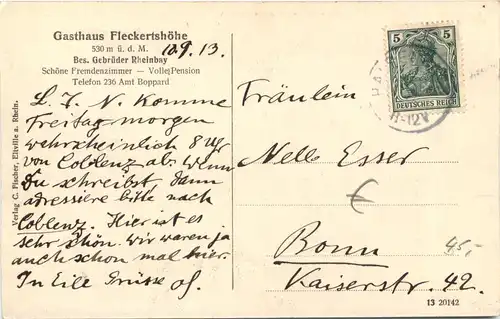 Gasthaus Fleckertshöhe
530 m ü. d. M.
10.9.13.
Bes. Gebrüder Rheinbay
Schöne Fremdenzimmer — Volle Pension
Telefon 236 Amt Boppard
L. N. Komme
Freitag morgen
wahrscheinlich 8 Uhr
von Coblenz ab. Wenn
Du schreibst, dann
adressiere bitte nach
Coblenz. Hier ist es
sehr schön. wir waren ja
auch schon mal hier.
In Eile Grüsse
Verlag C. Fischer, Eltville a. Rhein.
5 5
DEUTSCHES REICH
Fräulein
Nelle Esser
Bonn
45,-
Kaiserstr. 42.
13 20142